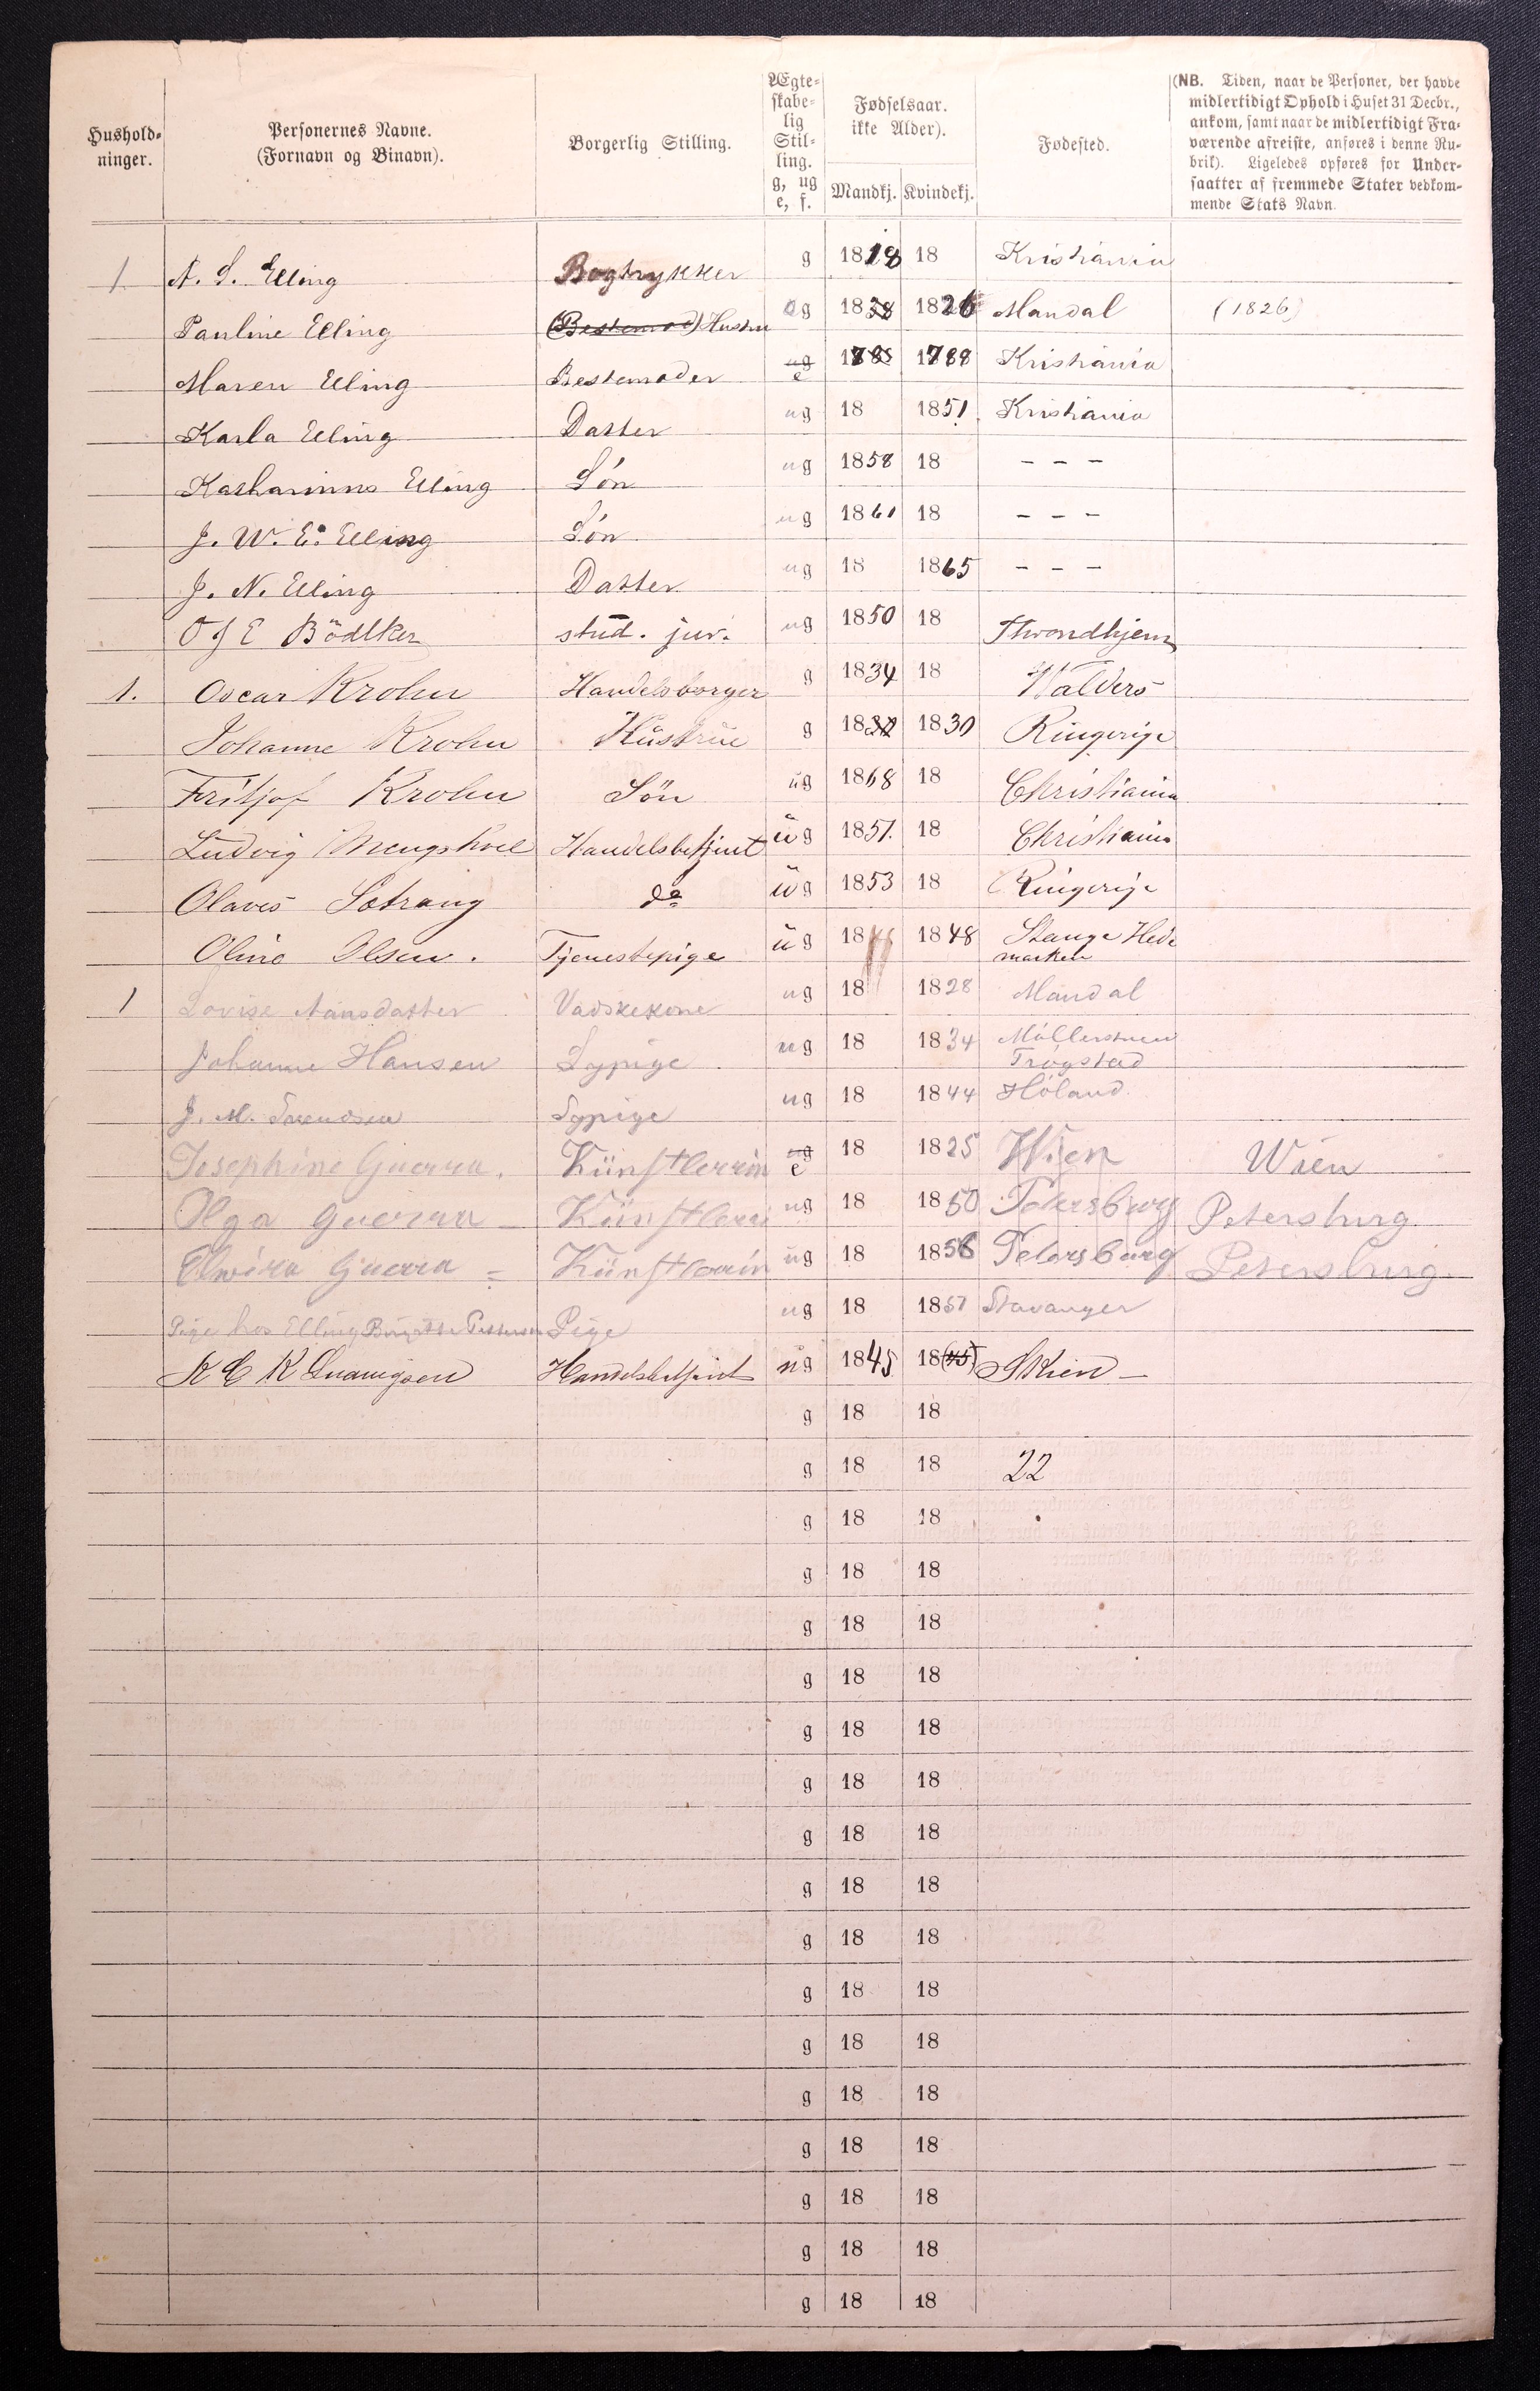 Hushold-
ninger.
Personernes Navne.
(Fornavn og Binavn).
Borgerlig Stilling.
Ægte-
skabe-
lig
Stil-
ling.
g, ug
e, f.
Fødselsaar.
ikke Alder).
Mandkj. Kvindekj.
Fødested.
(NB. Tiden, naar de Personer, der havde
midlertidigt Ophold i Huset 31 Decbr.,
ankom, samt naar de midlertidigt Fra-
værende afreiste, anføres i denne Ru-
brik). Ligeledes opføres for Under-
saatter af fremmede Stater vedkom-
mende Stats Navn.
1 A. S. Elling Bogtrykker g 1818 18 Kristiania
Pauline Elling (Bestemod) Hustru g 1838 1826 Mandal (1826)
Maren Elling Bestemoder ug e 1788 1788 Kristiania
Karla Elling Datter ug 18 1851. Kristiania
Katharinus Elling Søn ug 1858 18 - - -
J. W. E. Elling Søn ug 1861 18 - - -
J. N. Elling Datter ug 18 1865 - - -
O J E Bödtker stud. jur. ug 1850 18 Throndhjem
1. Oscar Krohn Handelsborger g 1834 18 Walders
Johanne Krohn Hüstrüe g 18 1830 Ringerige
Fritjof Krohn Sön ug 1868 18 Christiania
Ludvig Mengshoel Handelsbetjent ug 1851. 18 Christiania
Olaves Sotrang do ug 1853 18 Ringerige
Oline Olsen. Tjenestepige ug 18 1848 Stange Hede
marken
1 Lovise Aansdatter Vadskekone ug 18 1828 Mandal
Johanne Hansen Sypige ug 18 1834 Möllerstuen
Trøgstad
J. M. Svendsen Sypige ug 18 1844 Høland
Josephine Guerra. Künstlerrin ug e 18 1825 Wien Wien
Olga Guerra - Künstlerri ug 18 1850 Petersburg Petersburg.
Elwira Guerra = Künstlerrin ug 18 1856 Petersburg Petersburg.
Pige hos Elling Birgitte Pettersen Pige ug 18 1851 Stavanger
K C K Ludvigsen Handelsbetjent ug 1845 18(45) Skien -
g 18 18
g 18 18 22
g 18 18
g 18 18
g 18 18
g 18 18
g 18 18
g 18 18
g 18 18
g 18 18
g 18 18
g 18 18
g 18 18
g 18 18
g 18 18
g 18 18
g 18 18
g 18 18